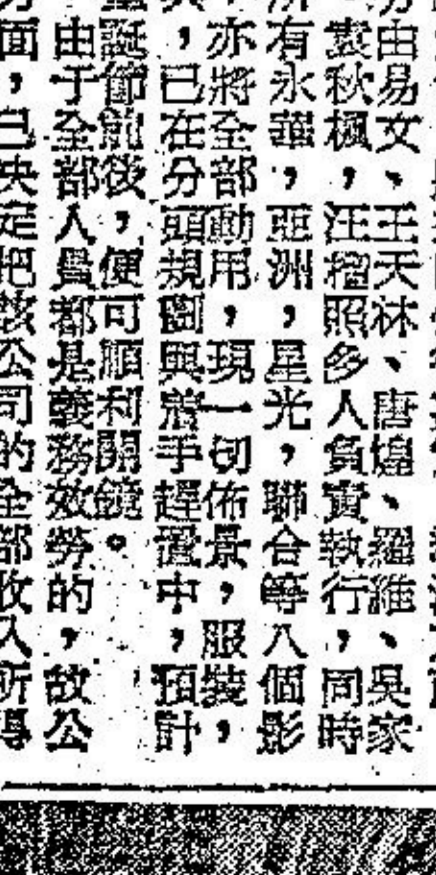 由易文、王天林、唐煌、羅維、吳家
袁秋楓，汪榴照多人負責執行，同時
有永華，亞洲，星光，聯合等八個影
，亦將全部動用，現一切佈景，服裝，
，已在分頭規劃與着手趕置中，預計
誕節前後，便可順利開鏡。
由于全部人員都是義務效勞的，故公
面，已決定把該公司的全部收入所得